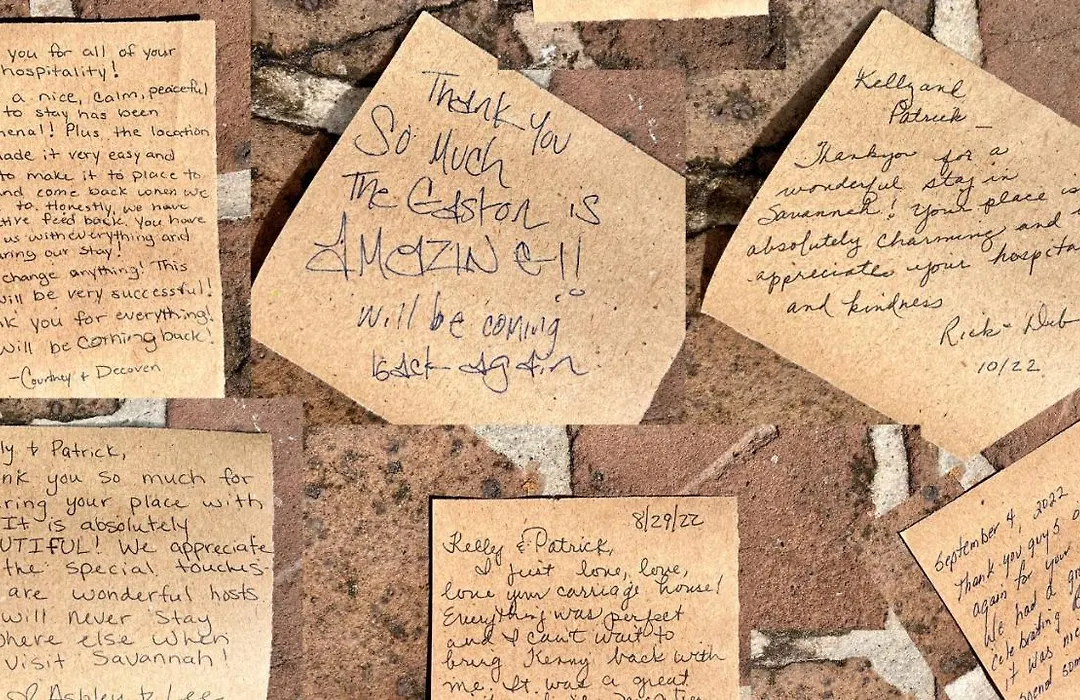 you for all of your
hospitality!
a nice, calm, peaceful
to stay has been
nenal! Plus the location
nade it very easy and
to make it to place to
nd come back when we
to. Honestly, we have
tive feed back. You have
us with everything and
uring our stay!
change anything! This
will be very successful!
nk you for everything!
will be coming back!
-Courtney + Decoven
Thank You
So Much
The Gaston is
AMAZING!!
will be coming
back again
Kelly and
Patrick
Thankyou for a
wonderful stay in
Savannah! Your place is
absolutely charming and
appreciate your hospita
and kindness
Rick + Deb
10/22
ly + Patrick,
nk you so much for
ring your place with
It is absolutely
UTIFUL! We appreciate
the special touches-
are wonderful hosts.
will never stay
where else when
visit Savannah!
Ashley & Lee
8/29/22
Kelly & Patrick,
I just love, love,
love your carriage house!
Everything was perfect
and I can't wait to
bring Kenny back with
me. It was a great
September 4, 2022
Thank you guys
again for your
We had a
celebrating
it was
spend